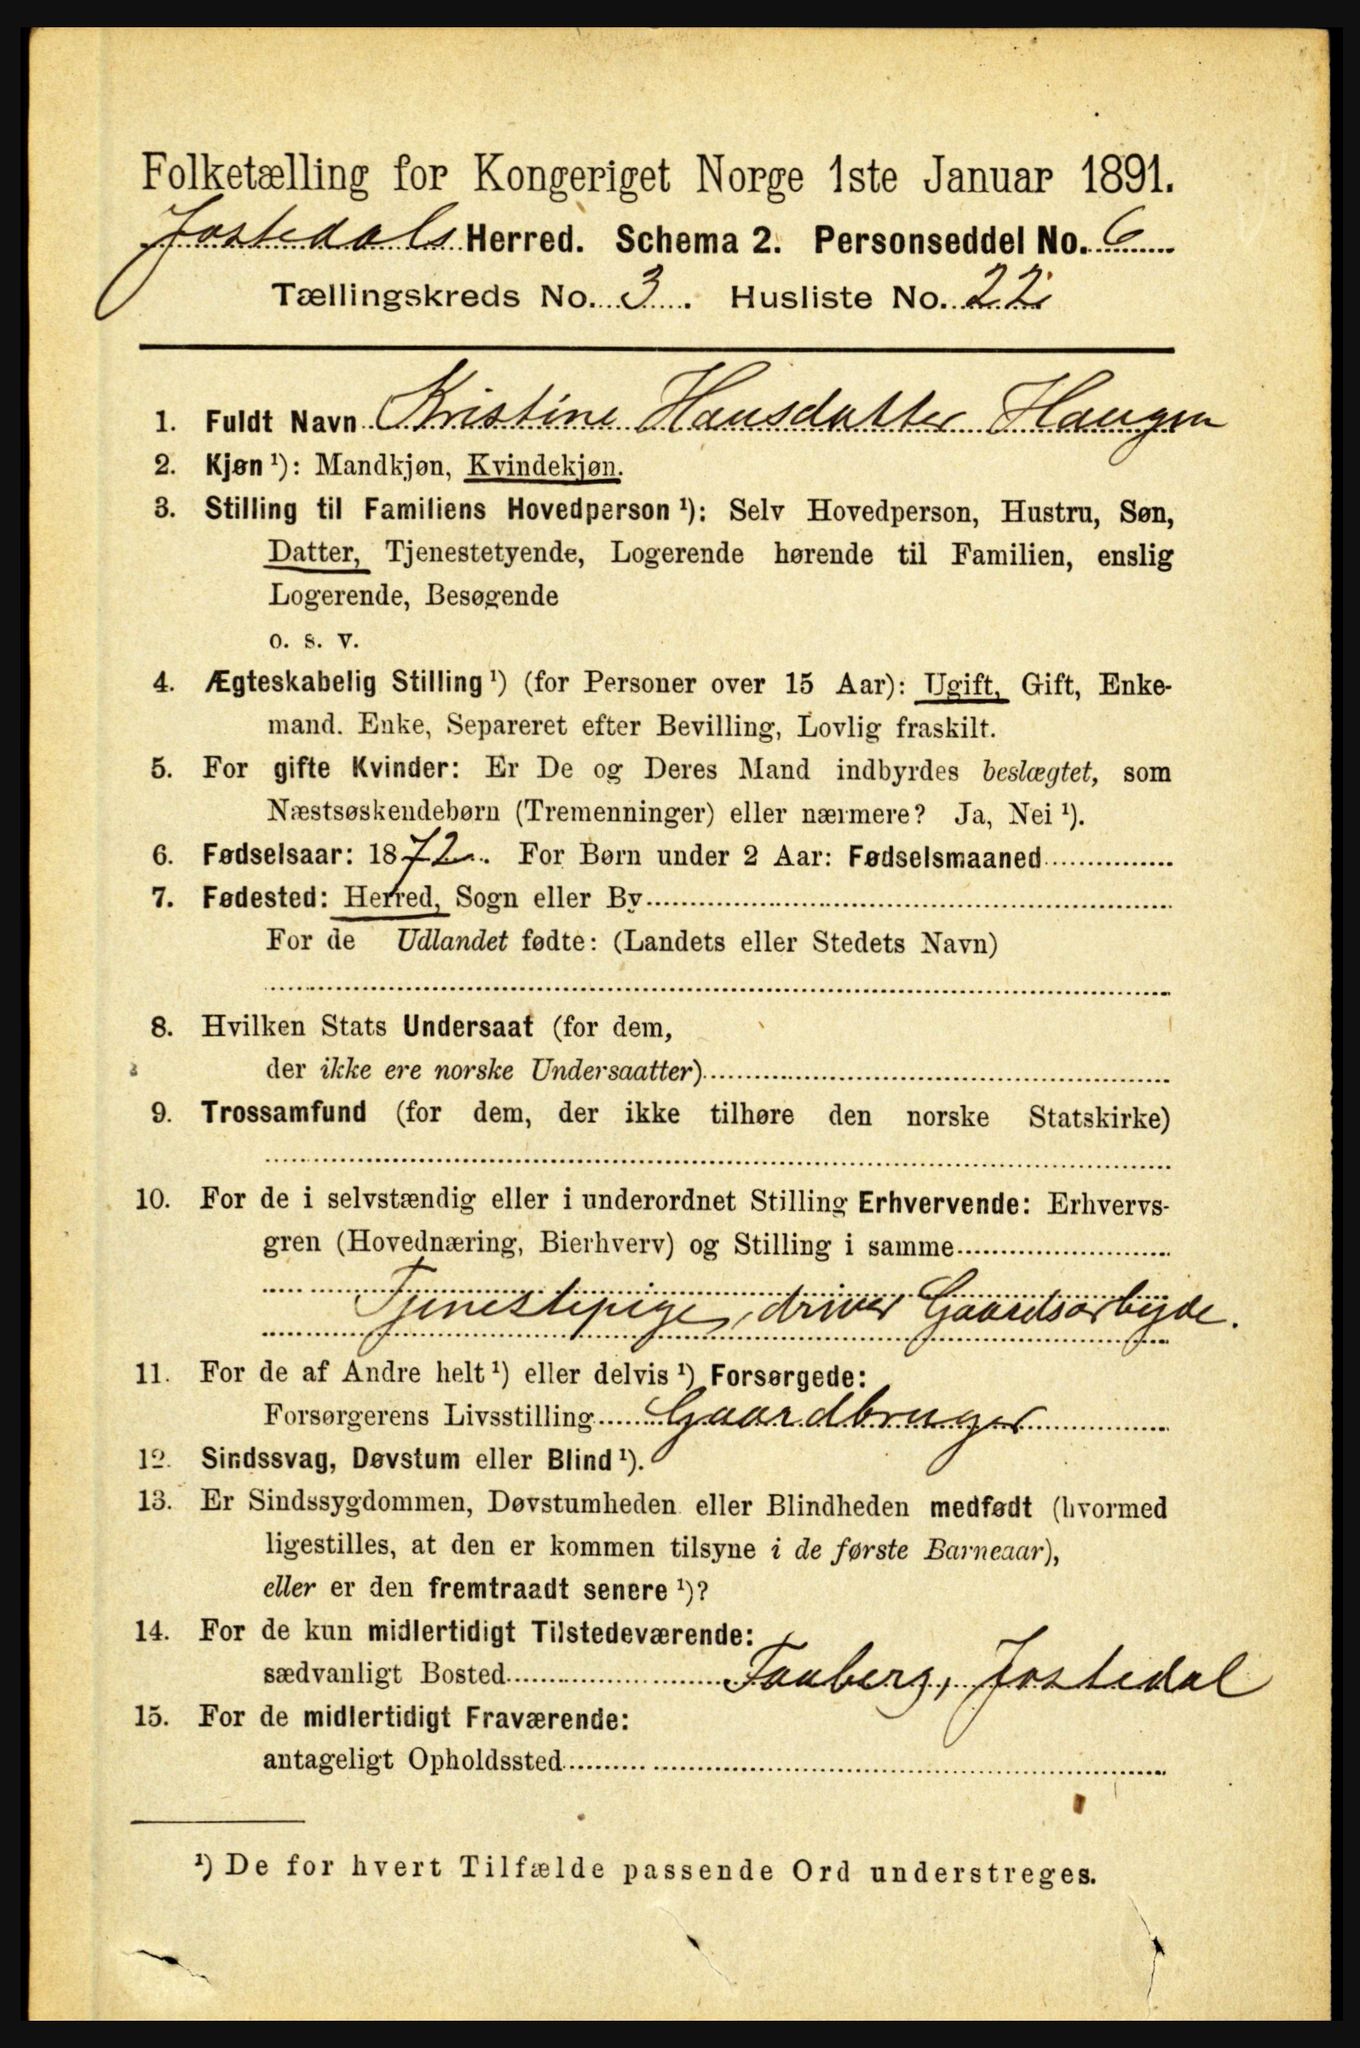 Folketælling for Kongeriget Norge 1ste Januar 1891.
Jostedals Herred. Schema 2. Personseddel No. 6
Tællingskreds No. 3. Husliste No. 22
1. Fuldt Navn Kristine Hansdatter Haugen
2. Kjøn ¹): Mandkjøn, Kvindekjøn.
3. Stilling til Familiens Hovedperson ¹): Selv Hovedperson, Hustru, Søn,
Datter, Tjenestetyende, Logerende hørende til Familien, enslig
Logerende, Besøgende
o. s. v.
4. Ægteskabelig Stilling ¹) (for Personer over 15 Aar): Ugift, Gift, Enke-
mand. Enke, Separeret efter Bevilling, Lovlig fraskilt.
5. For gifte Kvinder: Er De og Deres Mand indbyrdes beslægtet, som
Næstsøskendebørn (Tremenninger) eller nærmere? Ja, Nei ¹).
6. Fødselsaar: 1872. For Børn under 2 Aar: Fødselsmaaned
7. Fødested: Herred, Sogn eller By
For de Udlandet fødte: (Landets eller Stedets Navn)
8. Hvilken Stats Undersaat (for dem,
der ikke ere norske Undersaatter)
9. Trossamfund (for dem, der ikke tilhøre den norske Statskirke)
10. For de i selvstændig eller i underordnet Stilling Erhvervende: Erhvervs-
gren (Hovednæring, Bierhverv) og Stilling i samme
Tjenestepige, driver Gaardsarbejde.
11. For de af Andre helt ¹) eller delvis ¹) Forsørgede:
Forsørgerens Livsstilling Gaardbruger
12. Sindssvag, Døvstum eller Blind ¹).
13. Er Sindssygdommen, Døvstumheden eller Blindheden medfødt (hvormed
ligestilles, at den er kommen tilsyne i de første Barneaar),
eller er den fremtraadt senere ¹)?
14. For de kun midlertidigt Tilstedeværende:
sædvanligt Bosted Faaberg, Jostedal
15. For de midlertidigt Fraværende:
antageligt Opholdssted
¹) De for hvert Tilfælde passende Ord understreges.